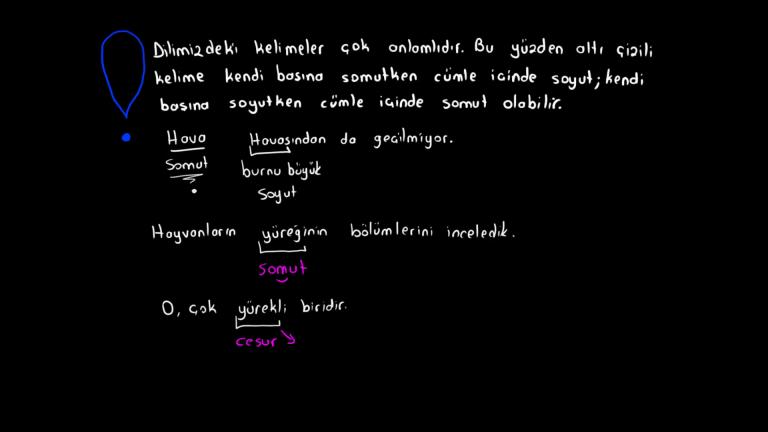 Dilimizdeki kelimeler çok anlamlıdır. Bu yüzden altı çizili
kelime kendi başına somutken cümle içinde soyut; kendi
başına soyutken cümle içinde somut olabilir.
Hava Havasından da geçilmiyor.
Somut burnu büyük
soyut
Hayvanların yüreğinin bölümlerini inceledik.
somut
O, çok yürekli biridir.
cesur